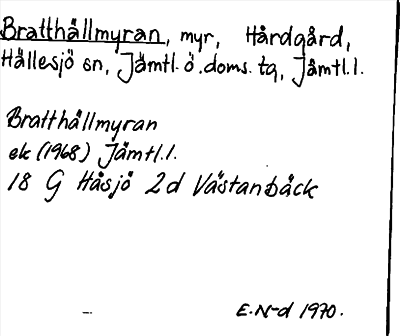 Bratthållmyran, myr, Hårdgård,
Hällesjö sn, Jämtl. ö. doms. tg, Jämtl. l.
Bratthållmyran
ek (1968) Jämtl. l.
18 G Håsjö 2d Västanbäck
E. N-d 1970.